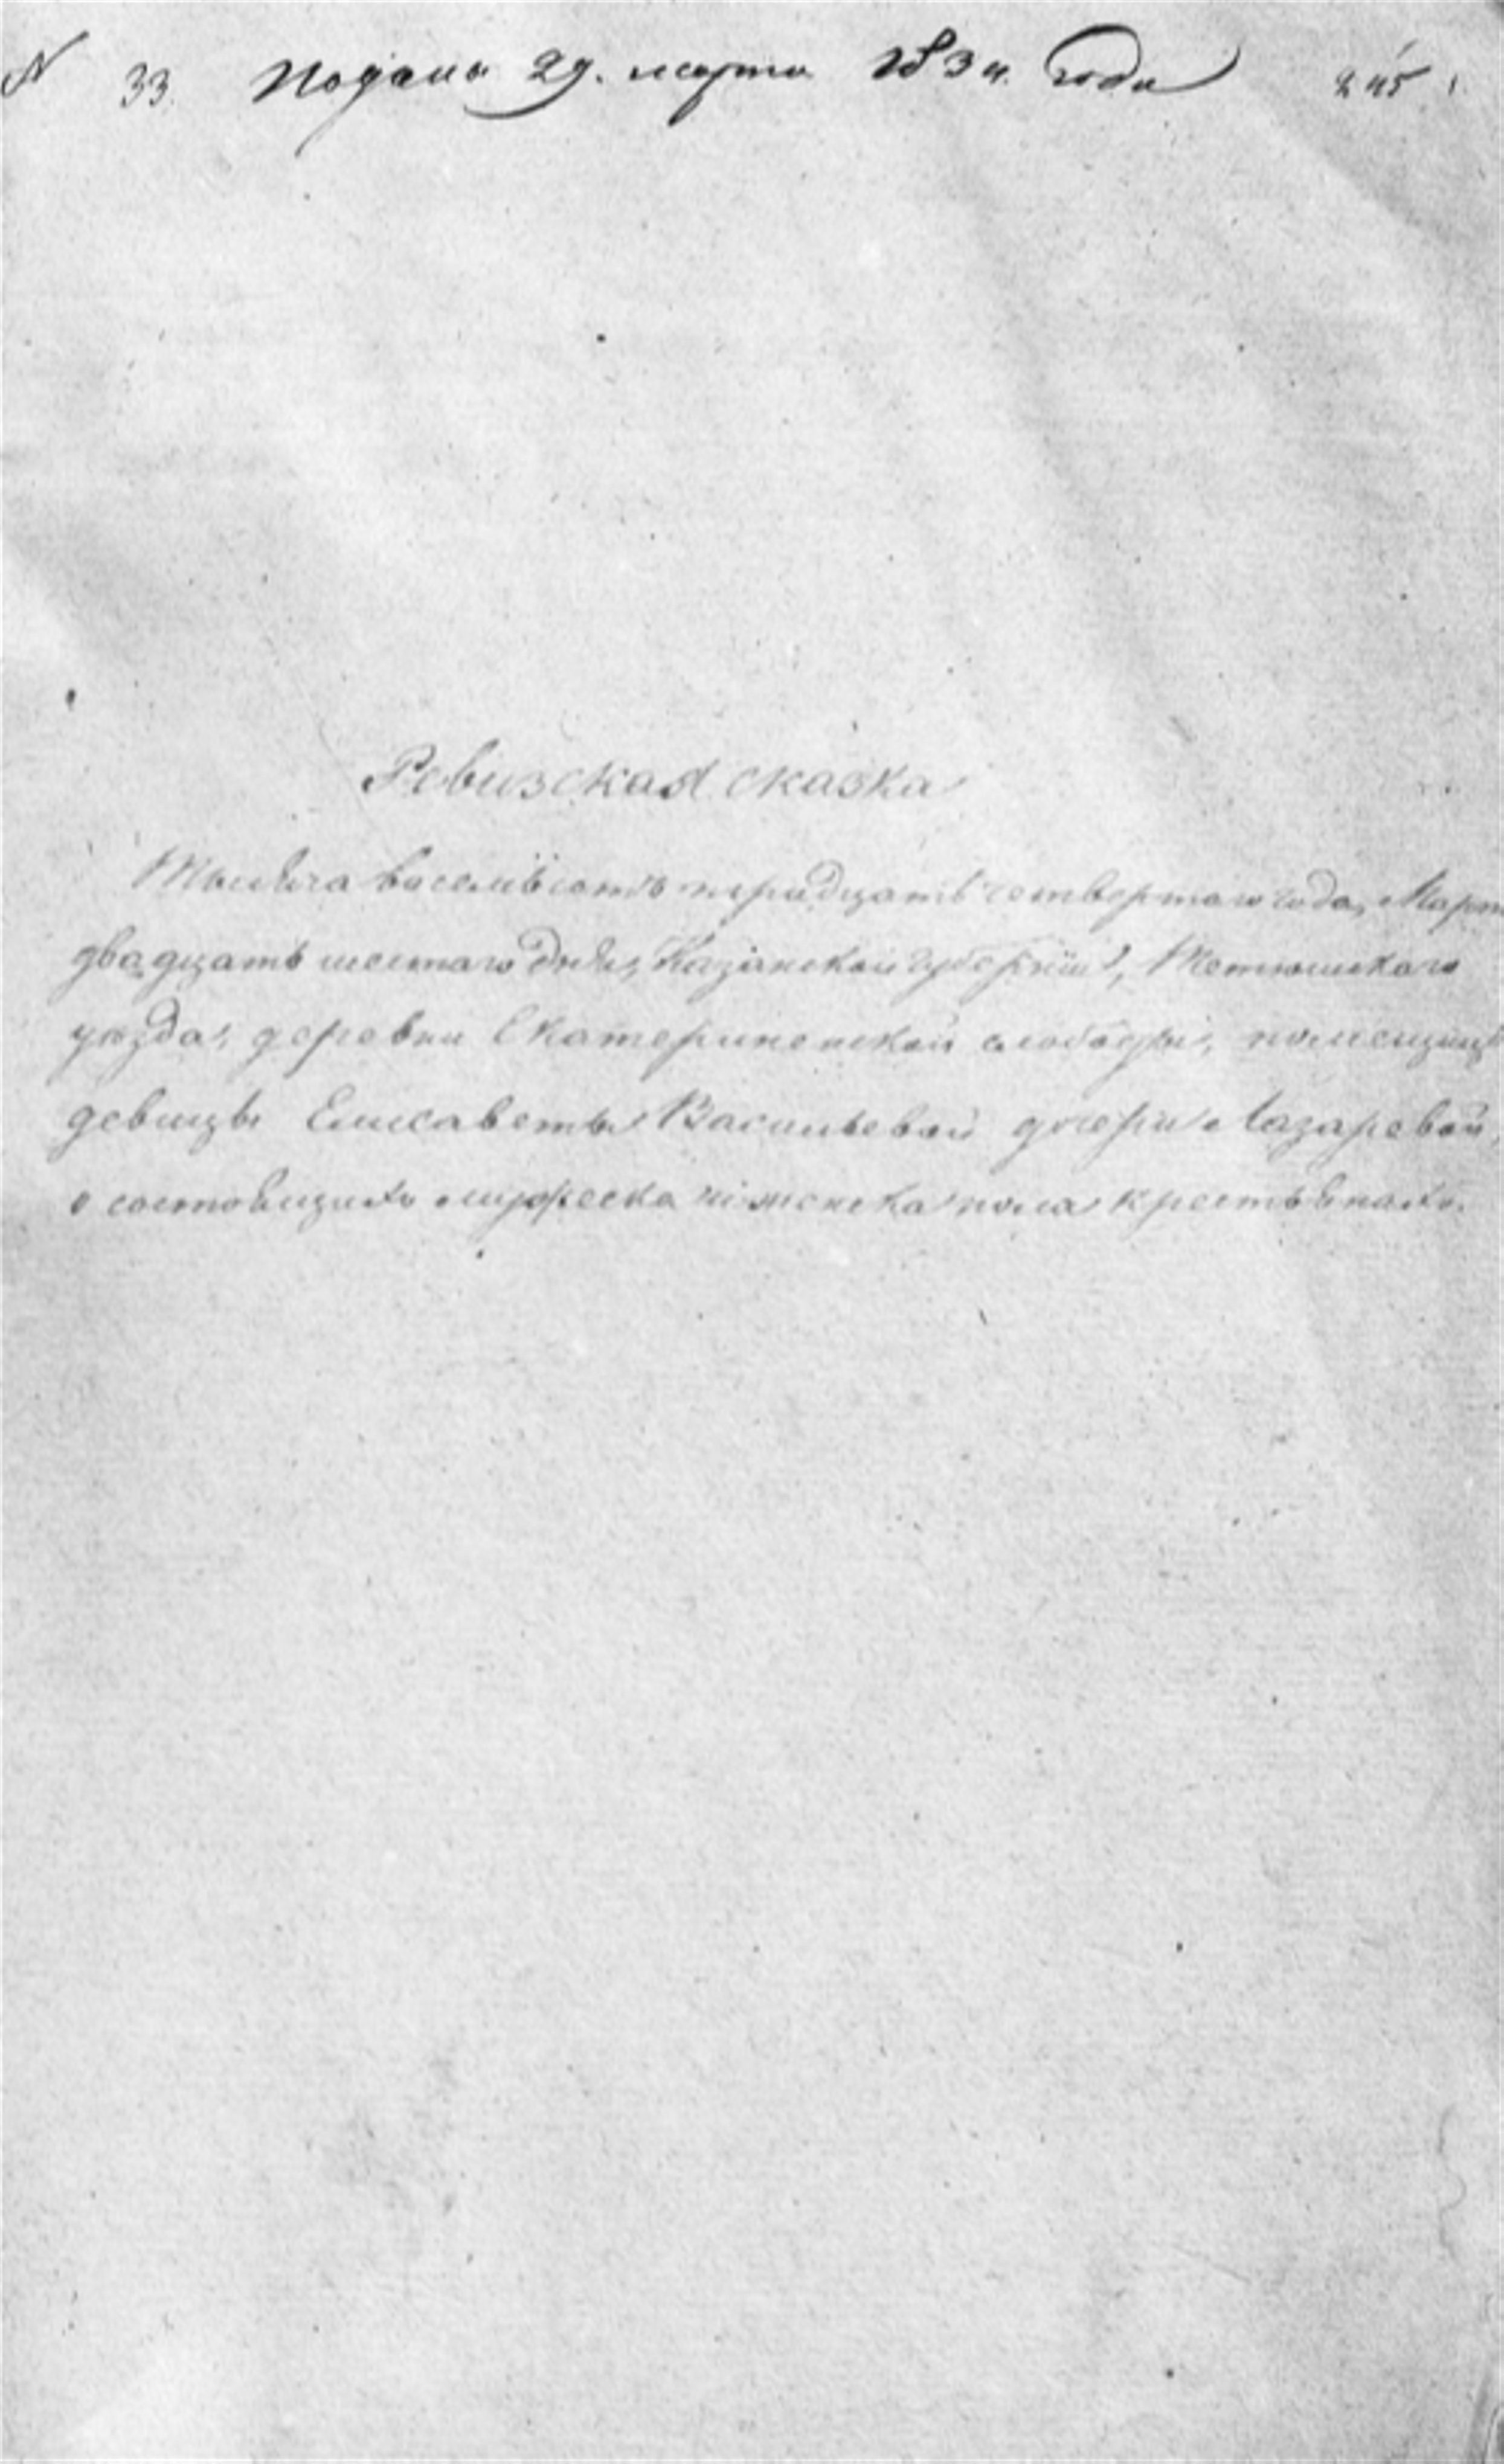 N 33. Подана 29. марта 1834. года 245
Ревизская сказка
Тысяча восемьсотъ тридцать четвертаго года, Март
двадцать шестаго дня, Казанской губернии, Тетюшскаго
уезда, деревни Екатерининской слободы, помещицы
девицы Елисаветы Васильевой дочери Лазаревой,
о состоящихъ мужеска и женска пола крестьянахъ.